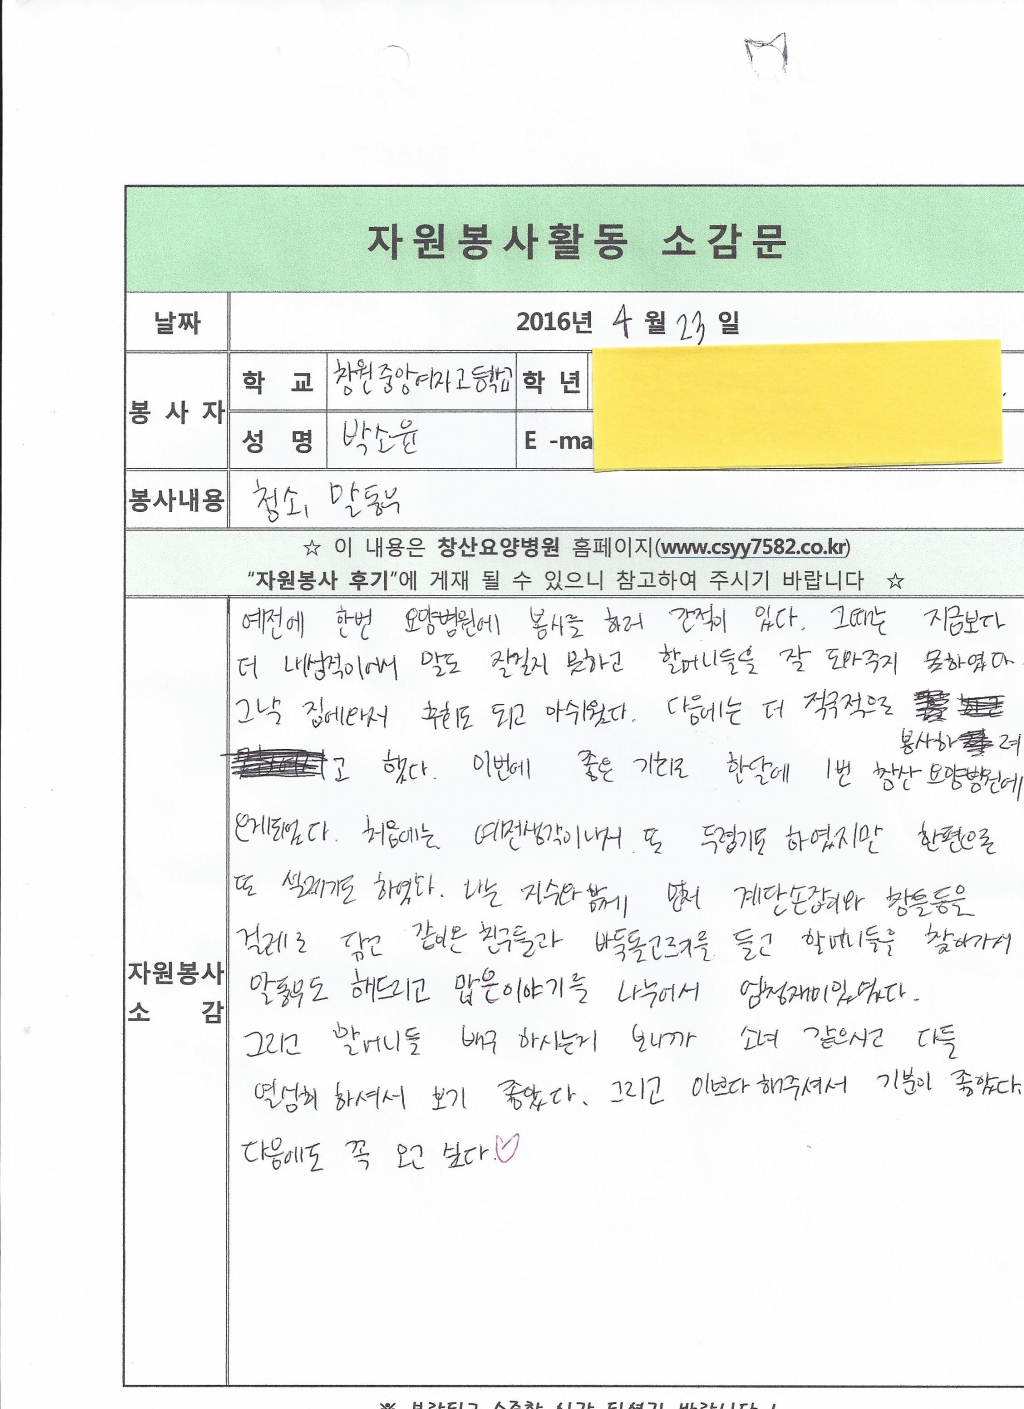 자원봉사활동 소감문
날짜 2016년 4월 23일
봉사자 학교 창원중앙여자고등학교 학년
성명 박소윤 E-ma
봉사내용 청소, 말동무
☆ 이 내용은 창산요양병원 홈페이지(www.csyy7582.co.kr)
"자원봉사 후기"에 게재 될 수 있으니 참고하여 주시기 바랍니다 ☆
자원봉사 소감
예전에 한번 요양병원에 봉사를 하러 간적이 있다. 그때는 지금보다
더 내성적이어서 말도 잘걸지 못하고 할머니들을 잘 도와주지 못하였다.
그날 집에와서 후회도 되고 아쉬웠다. 다음에는 더 적극적으로
봉사하려
고 했다. 이번에 좋은 기회로 한달에 1번 창산 요양병원에
오게되었다. 처음에는 예전생각이나서 또 두렵기도 하였지만 한편으로
또 설레기도 하였다. 나는 지수와 함께 먼저 계단손잡이와 창틀등을
걸레로 닦고 같이온 친구들과 바둑돌고르기를 들고 할머니들을 찾아가서
말동무도 해드리고 많은이야기를 나누어서 엄청재미있었다.
그리고 할머니들 배구 하시는거 보니까 소녀 같으시고 다들
열심히 하셔서 보기 좋았다. 그리고 이쁘다 해주셔서 기분이 좋았다.
다음에도 꼭 오고 싶다.♡